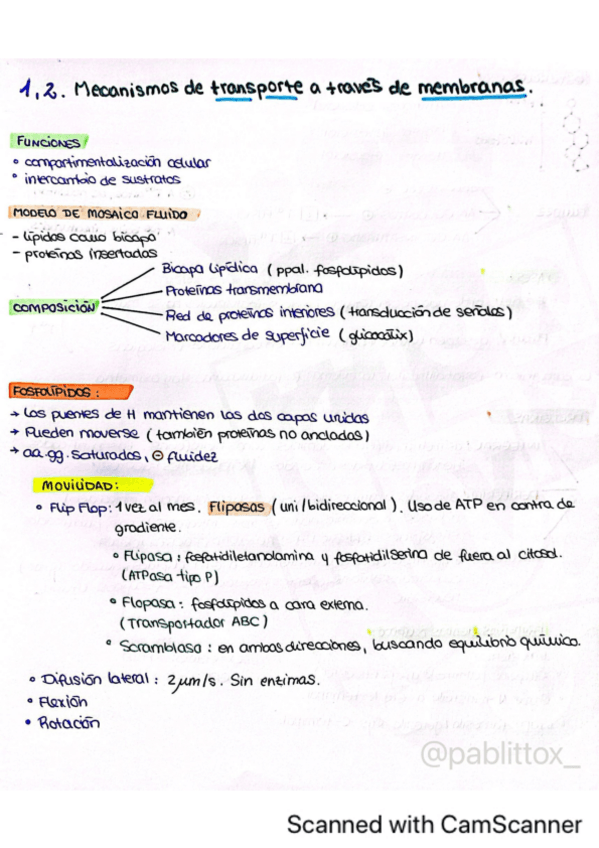 1.2. Mecanismos de transporte a través de membranas.
FUNCIONES
• compartimentalización celular
• intercambio de sustratos
MODELO DE MOSAICO FLUIDO
- lípidos como bicapa
- proteínas insertadas
COMPOSICIÓN
Bicapa lipídica (ppal. fosfolípidos)
Proteínas transmembrana
Red de proteínas interiores (transducción de señales)
Marcadores de superficie (glicocálix)
FOSFOLÍPIDOS:
→ Los puentes de H mantienen las dos capas unidas
→ Pueden moverse (también proteínas no ancladas)
→ aa.gg. saturados, ⊖ fluidez
MOVILIDAD:
• Flip Flop: 1 vez al mes. Fliposas (uni/bidireccional). Uso de ATP en contra de
gradiente.
• Flipasa: fosfatidiletanolamina y fosfatidilserina de fuera al citosol.
(ATPasa tipo P)
• Flopasa: fosfolípidos a cara externa.
(Transportador ABC)
• Scramblasa: en ambas direcciones, buscando equilibrio químico.
• Difusión lateral: 2 μm/s. Sin enzimas.
• Flexión
• Rotación
@pablittox_
Scanned with CamScanner